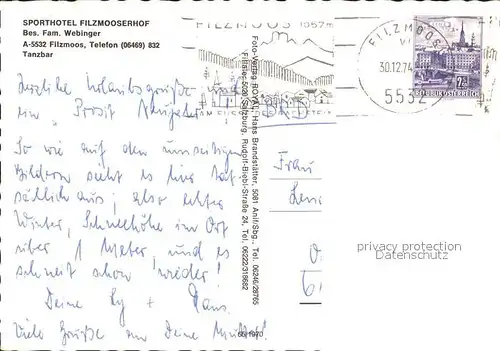 SPORTHOTEL FILZMOOSERHOF
Bes. Fam. Webinger
A-5532 Filzmoos, Telefon (06469) 832
Tanzbar
Herzliche Urlaubsgrüße und
ein „Prosit Neujahr“
So wie auf den umseitigen
Bildern sieht es hier tat-
sächlich aus; also echter
Winter, Schneehöhe im Ort
über 1 Meter, und es
schneit schon wieder!
Deine + Hans.
Viele Grüße an Deine
Foto-Verlag ROYAL, Hans Brandstätter, 5081 Anif/Sbg., Tel. 06246/28765
Filiale: 5020 Salzburg, Rudolf-Biebl-Straße 24, Tel. 06222/318682
66/1970
FILZMOOS 1057 m
FILZMOOS
30.12.74
5532
REPUBLIK ÖSTERREICH
BRD
Frau
privacy protection
Datenschutz